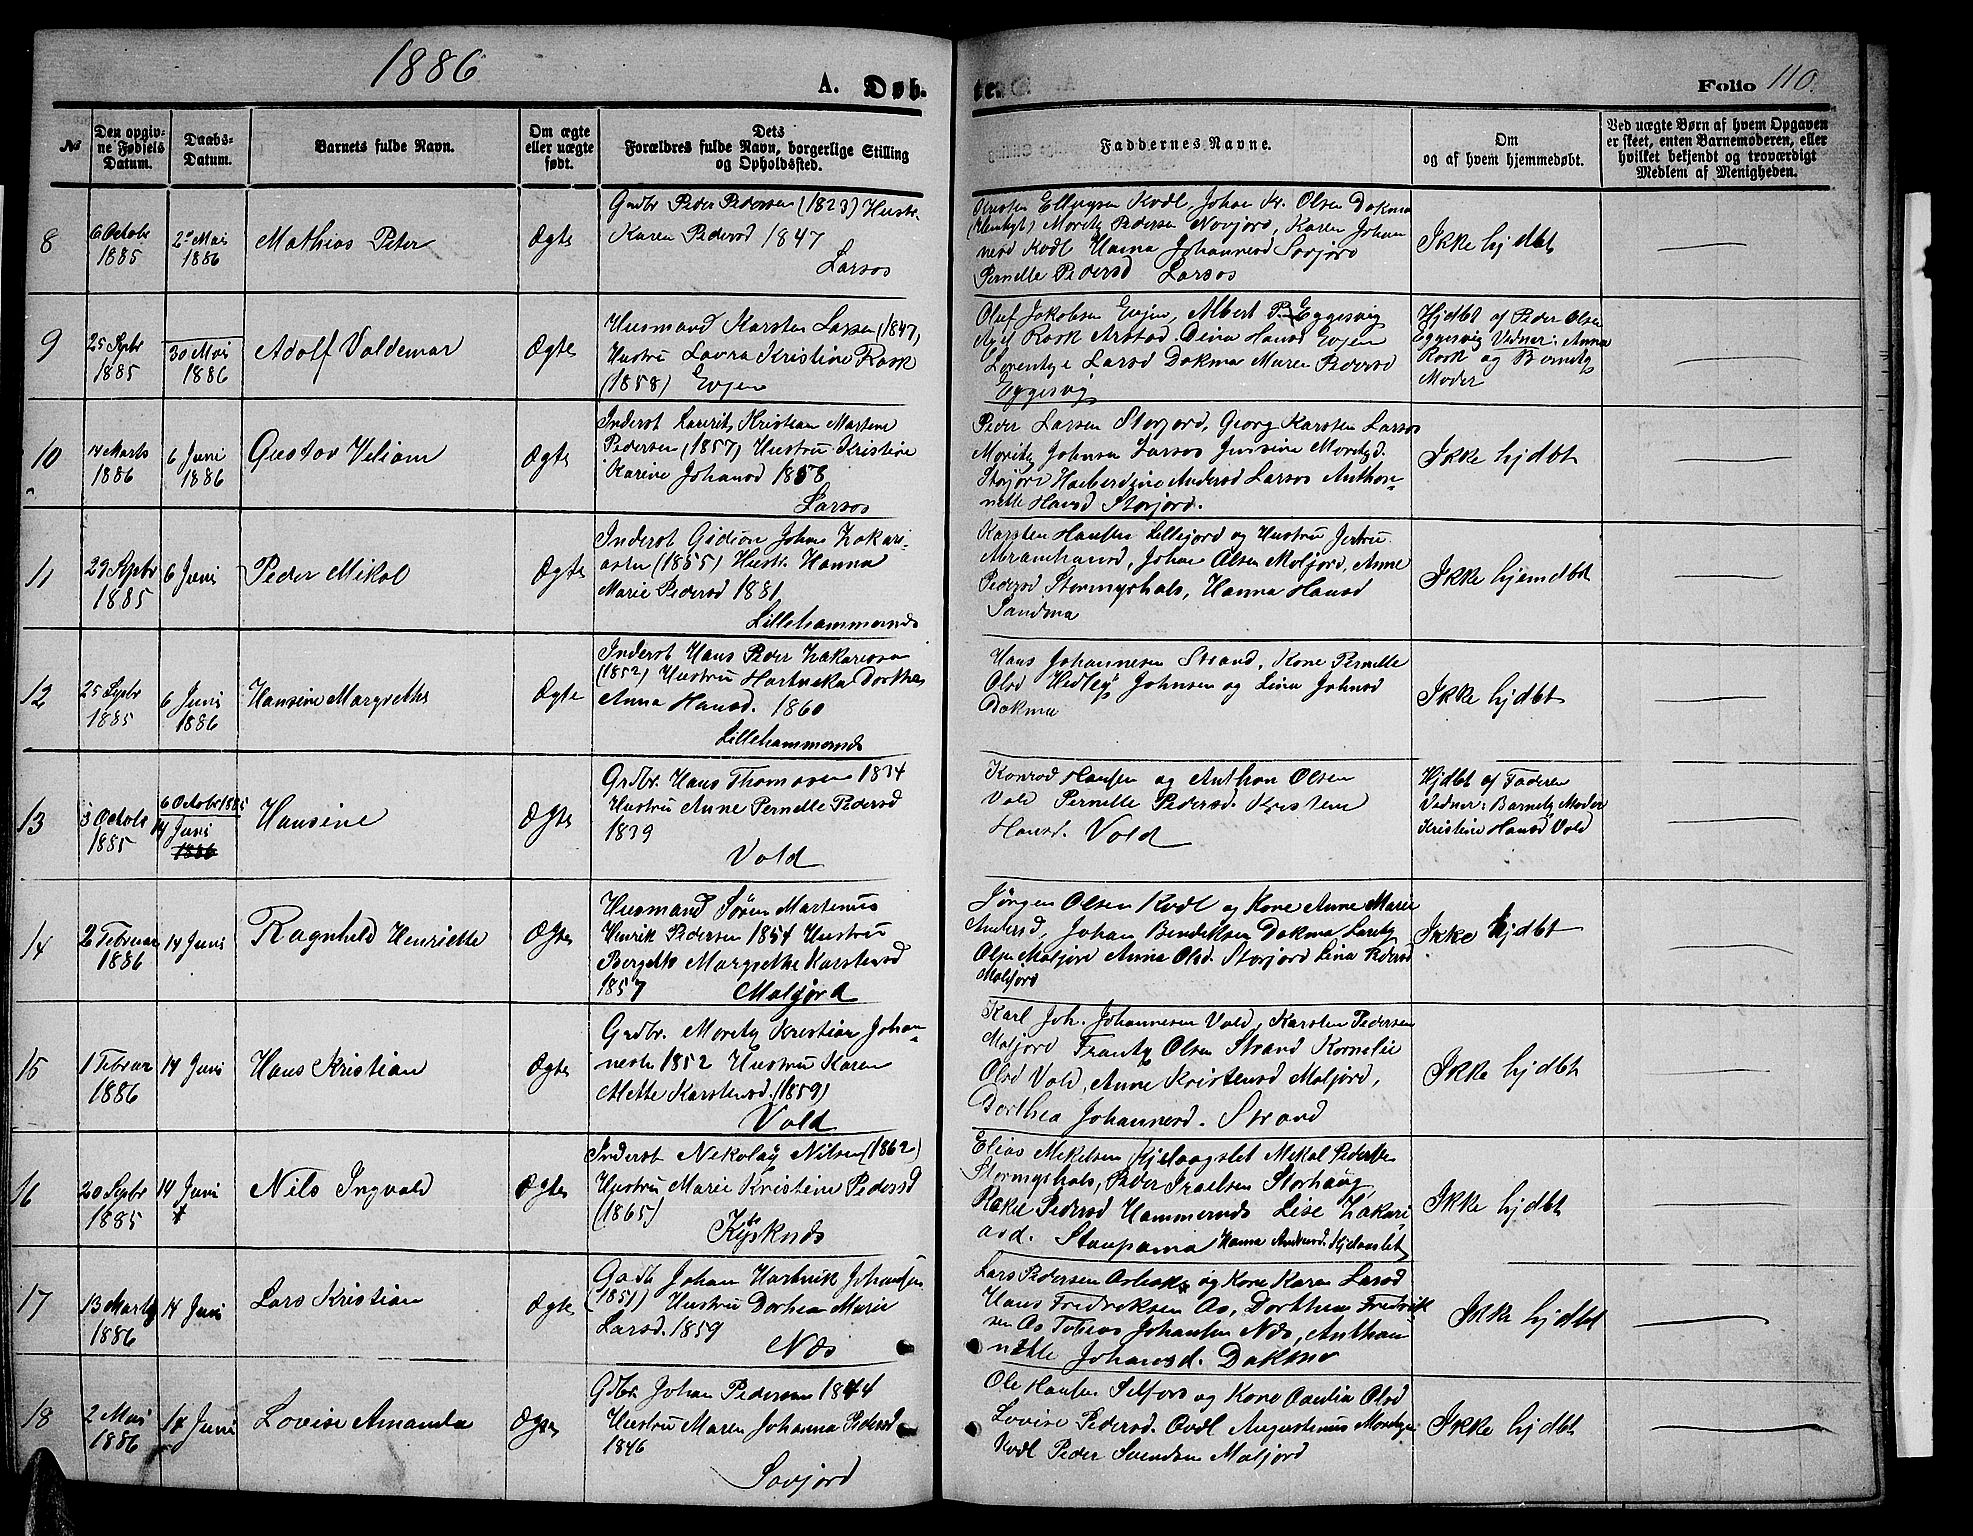 1886
A. Døb-
te.
Folio 110.
No
Den opgiv-
ne Fødsels
Datum.
Daabs-
Datum.
Barnets fulde Navn.
Om ægte
eller uægte
født.
Dets
Forældres fulde Navn, borgerlige Stilling
og Opholdssted.
Faddernes Navne.
Om
og af hvem hjemmedøbt.
Ved uægte Børn af hvem Opgaven
er skeet, enten Barnemoderen, eller
hvilket bekjendt og troværdigt
Medlem af Menigheden.
8
6 Octobr
1885
2den Mai
1886
Mathias Peter
Ægte
Grdbr Peder Pedersen (1823) Hustr.
Karen Pedersd 1847
Larsos
Kristen Ellingsen Kodl, Johan Kr. Olsen Dokmo
Moritz Pedersen Novjord, Karen Johan
nesd Kodl Hanna Johannesd Sovjord
Pernelle Pedersd Larsos
Ikke hjdbt
9
25 Sptbr
1885
30 Mai
1886
Adolf Valdemar
Ægte
Husmand Karsten Larsen (1847,
Hustru Lavra Kristine Rosk
(1858) Evjen
Oluf Jakobsen Evjen, Albert P. Eggesvig
Axel Rosk Arstad. Dina Hansd Evjen
Lorentze Larsd Dokmo Maren Pedersd
Eggesvig
Hjdbt af Peder Olsen
Eggesvig Vidner: Anna
Rosk og Barnets
Moder
10
14 Marts
1886
6 Juni
1886
Gustav Veliam
Ægte
Inderst Laurits Kristian Martene
Pedersen (1857) Hustru Kristine
Karine Johansd 1858
Larsos
Peder Larsen Storjord, Georg Karsten Larsos
Moritz Johnsen Larsos Jensine Moritzd.
Storjord Haeberdine Andersd Larsos Anthon-
nette Hansd Storjord.
Ikke hjdbt
11
29 Sptbr
1885
6 Juni
Peder Mikal
Ægte
Inderst Gidion Johan Zakari-
asen (1855) Hustr. Hanna
Marie Pedersd 1881
Lillehammernds
Karsten Hansen Lillejord og Hustru Jertru
Abramhamsd, Johan Olsen Molfjord, Anne
Pedersd Stormyrhals, Hanna Hansd
Sandmo
Ikke hjemdbt
12
25 Sptbr
1885
6 Juni
1886
Hansine Margrethe
Ægte
Inderst Hans Peder Zakariasen
(1852) Hustru Hartvika Dorthea
Anna Hansd. 1860
Lillehammernds
Hans Johannesen Strand, Kone Pernelle
Olsd Hedley Johnsen og Lina Johnsd
Dokmo
Ikke hjdbt
13
3 Octobr
1885
6 Octobr 1885
14 Juni
1886
Hansine
Ægte
Grdbr. Hans Thomasen 1834
Hustru Anne Pernelle Pedersd
1839
Vold
Konrad Hansen og Anthon Olsen
Vold Pernelle Pedersd. Kristene
Hansd. Vold
Hjdbt af Faderen
Vidner: Barnets Moder
Kristine Hansd Vold
14
2 Februar
1886
14 Juni
Ragnhild Henriette
Ægte
Husmand Søren Martenus
Henrik Pedersen 1854 Hustru
Bergette Margrethe Karstensd
1857 Molfjord
Jørgen Olsen Kodl og Kone Anne Marie
Andersd, Johan Bendiksen Dokmo Laritz
Olsen Molfjord Anna Olsd. Storjord Lina Pedersd
Molfjord
Ikke hjdbt
15
1 Februar
1886
14 Juni
Hans Kristian
Ægte
Grdbr. Moritz Kristian Johan-
nesen 1852 Hustru Karen
Mette Karstensd. (1859)
Vold
Karl Joh. Johannesen Vold, Karsten Pedersen
Molfjord Frantz Olsen Strand Kornelie
Olsd Vold, Anne Kristensd Molfjord,
Dorthea Johannesd. Strand
Ikke hjdbt
16
20 Sptbr
1885
14 Juni
Nils Ingvald
Ægte
Inderst Nekolay Nilsen (1862)
Hustru Marie Kristine Pedersd
(1865)
Elias Mekelsen Kjelaagslet Mekal Pedersen
Stormyrhals, Peder Israelsen Storhaug,
Rakel Pedersd Hammernds Lise Zakari
asd. Staupamo Hanna Andersd. Kjelaaslet
Ikke hjdbt
17
13 Marts
1886
14 Juni
Lars Kristian
Ægte
Grdb Johan Hartvik Johansen
(1851) Hustru Dorhea Marie
Larsd. 1859
Nds
Lars Pedersen og Kone Karen Larsd
Hans Fredriksen Os, Dorthea Fredrik
sen Os Tobias Johansen Nds, Anthon-
nette Johansd. Dokmo
Ikke hjdbt
18
2 Mai
1886
14 Juni
Lovise Amanda
Ægte
Gdbr. Johan Pedersen 1844
Hustru Maren Johanna Pedersd
1846
Sovjord
Ole Hansen Selfors og Kone Olsd
Lovise Pedersd. Kodl Augustinus Moritzen
Kodl Peder Svendsen Molfjord
Ikke hjdbt